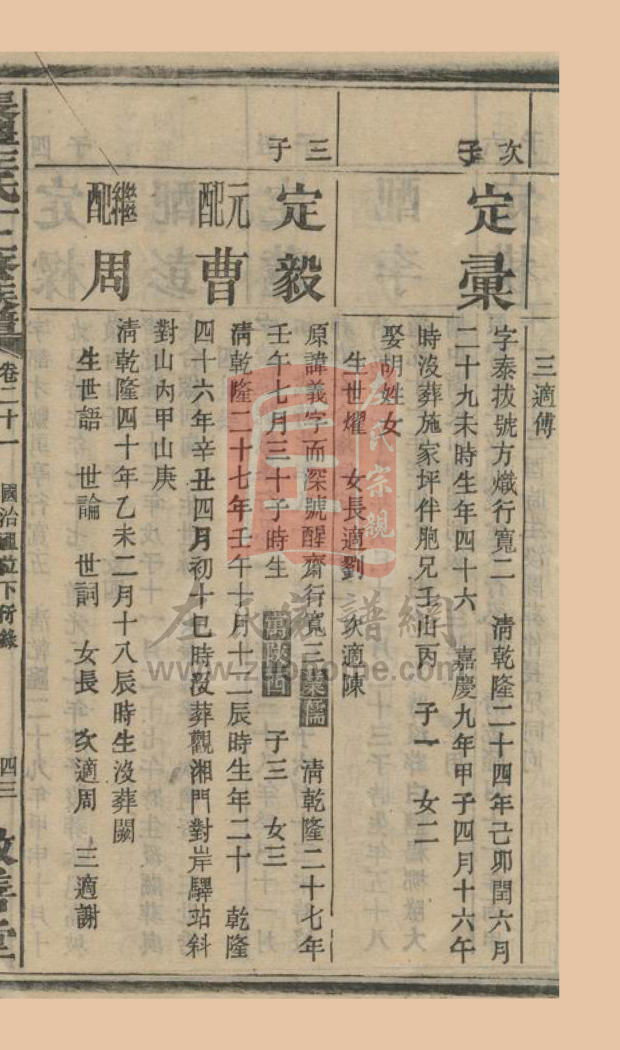 三適傅
次子
定彙
字泰拔號方熾行寬二 清乾隆二十四年己卯閏六月
二十九未時生年四十六 嘉慶九年甲子四月十六午
時沒葬施家坪伴胞兄壬山丙 子一 女二
娶胡姓女
生世燿 女長適劉 次適陳
三子
定毅
原諱義字而深號醒齋行寬三業儒 清乾隆二十七年
壬午七月三十子時生 寓陝西 子三 女三
元配曹
清乾隆二十七年壬午十月十二辰時生年二十 乾隆
四十六年辛丑四月初十巳時沒葬觀湘門對岸驛站斜
對山內甲山庚
繼配周
清乾隆四十年乙未二月十八辰時生沒葬闕
生世語 世論 世詞 女長 次適周 三適謝
卷二十一
國治祖位下衍錄
四三
左氏宗親
左氏家譜網
www.zuohome.com